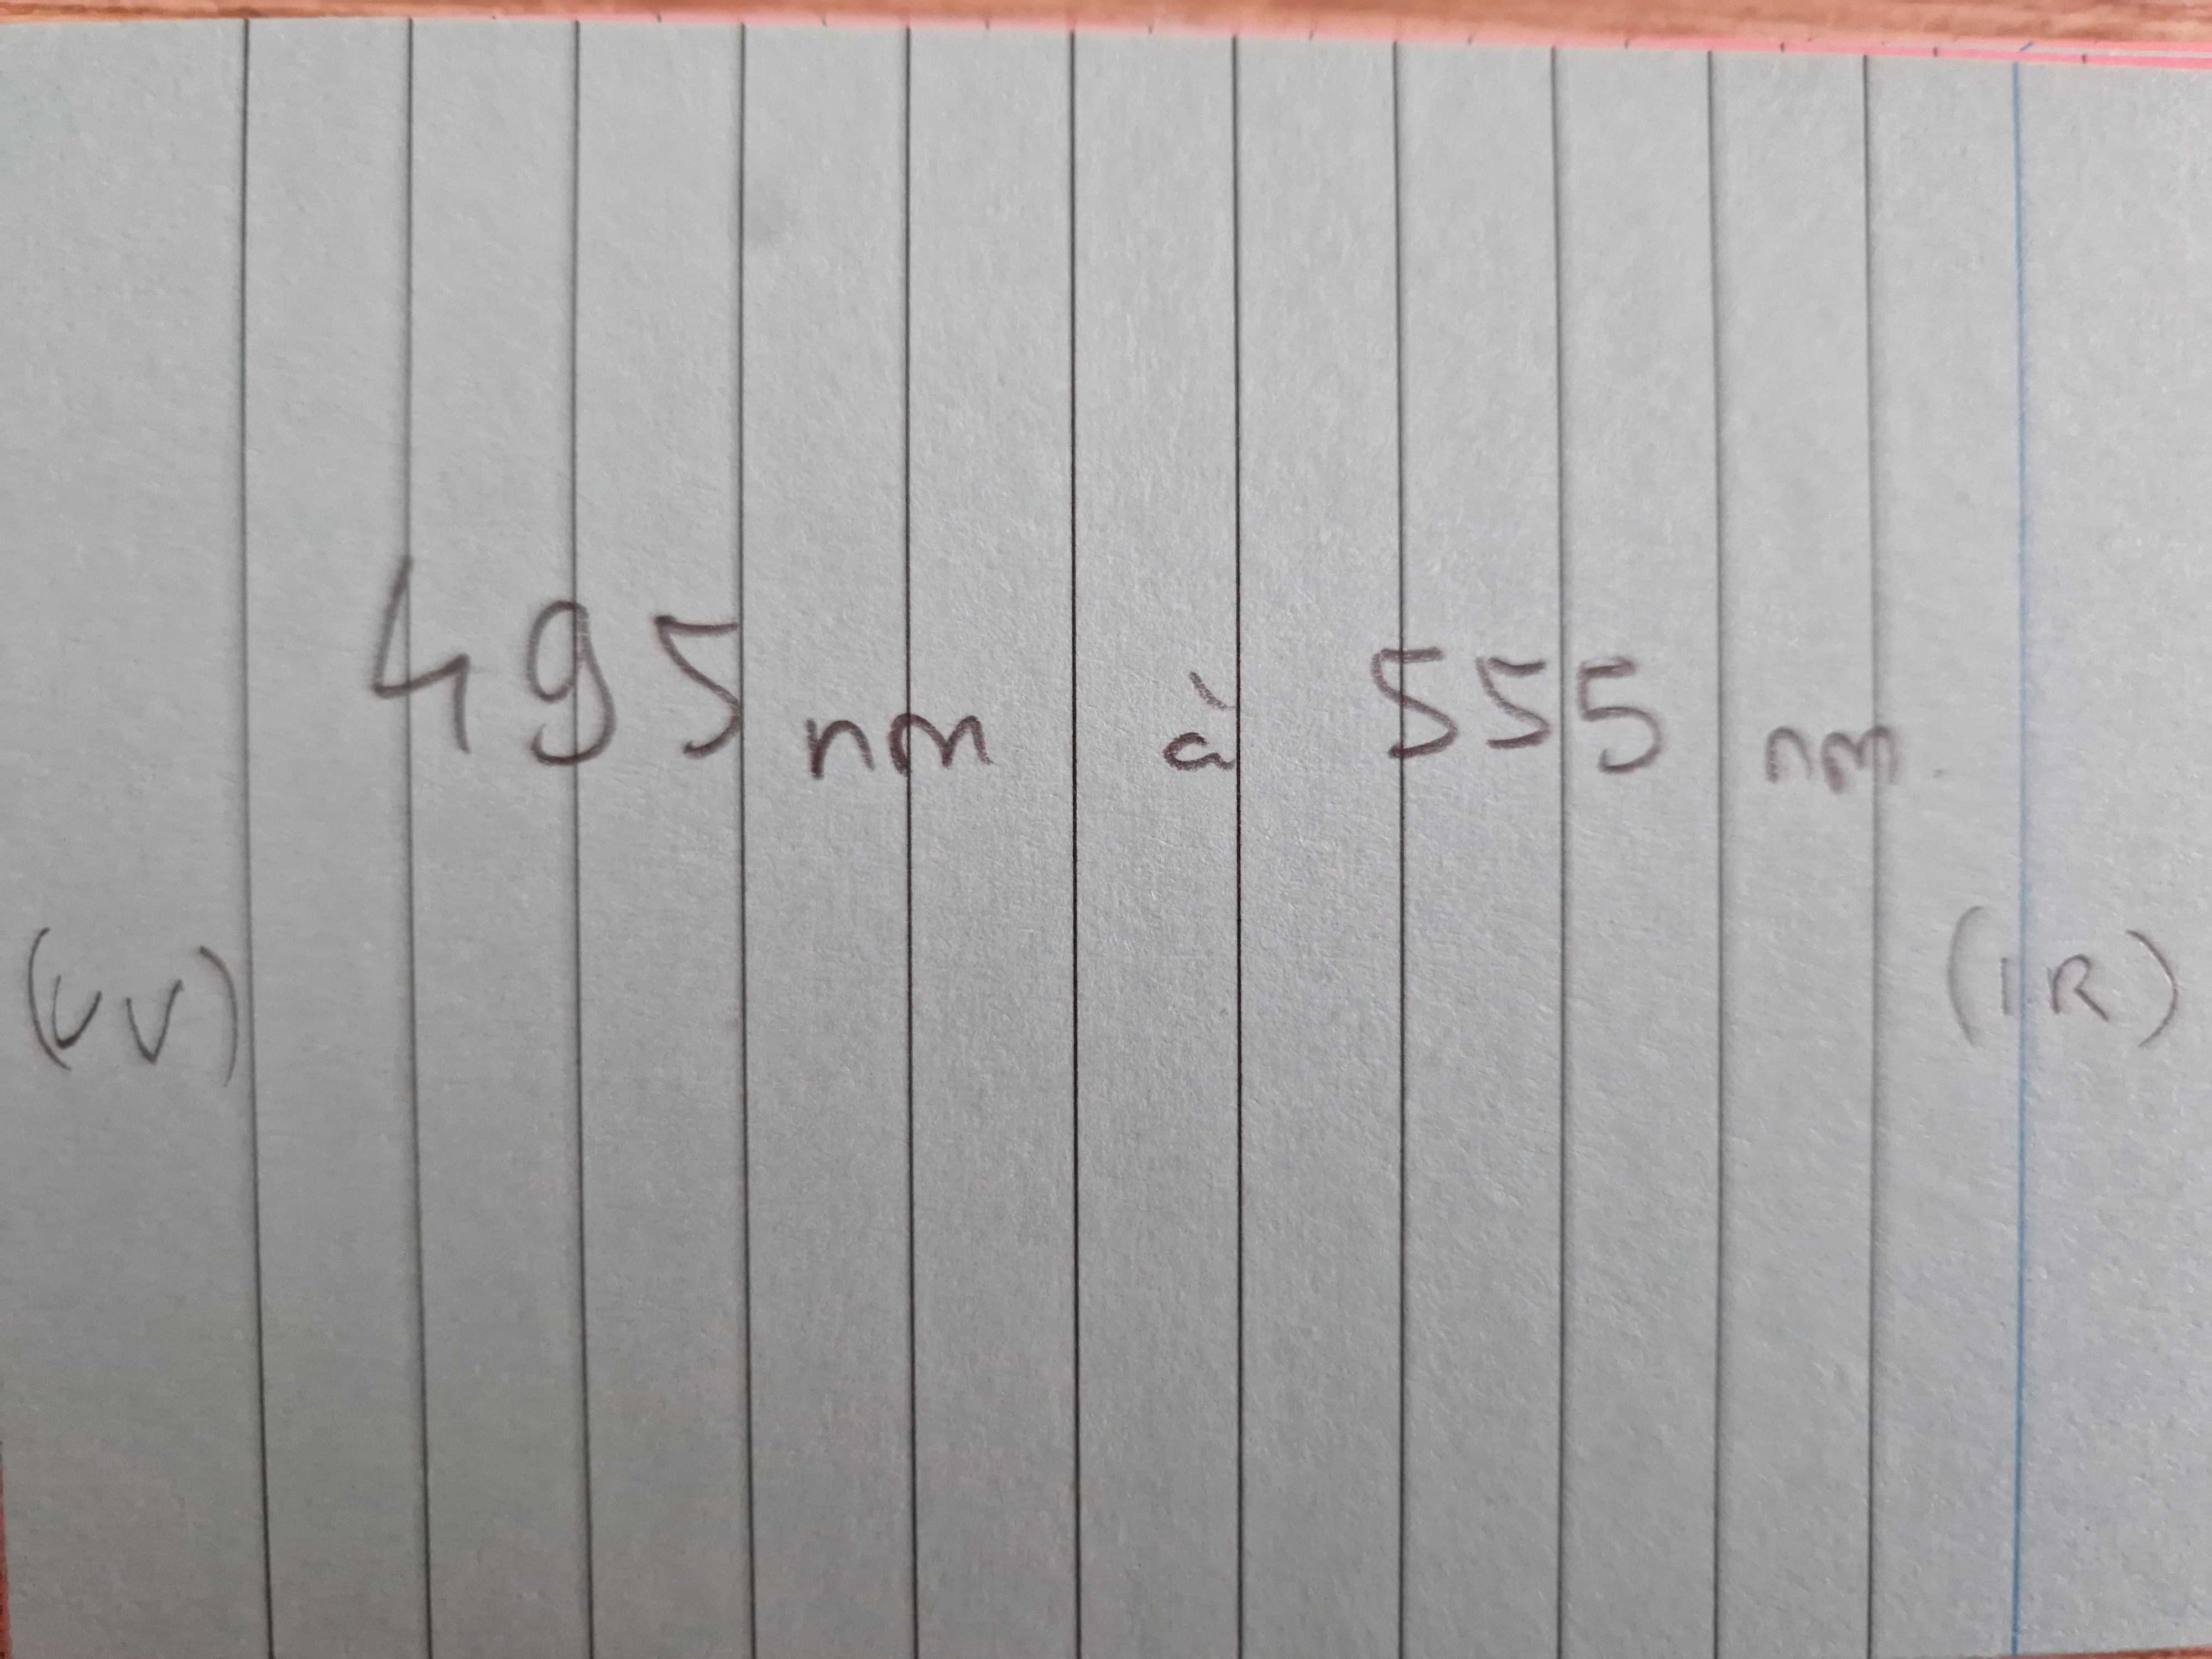 495 nm à 555 nm.
(UV) (IR)